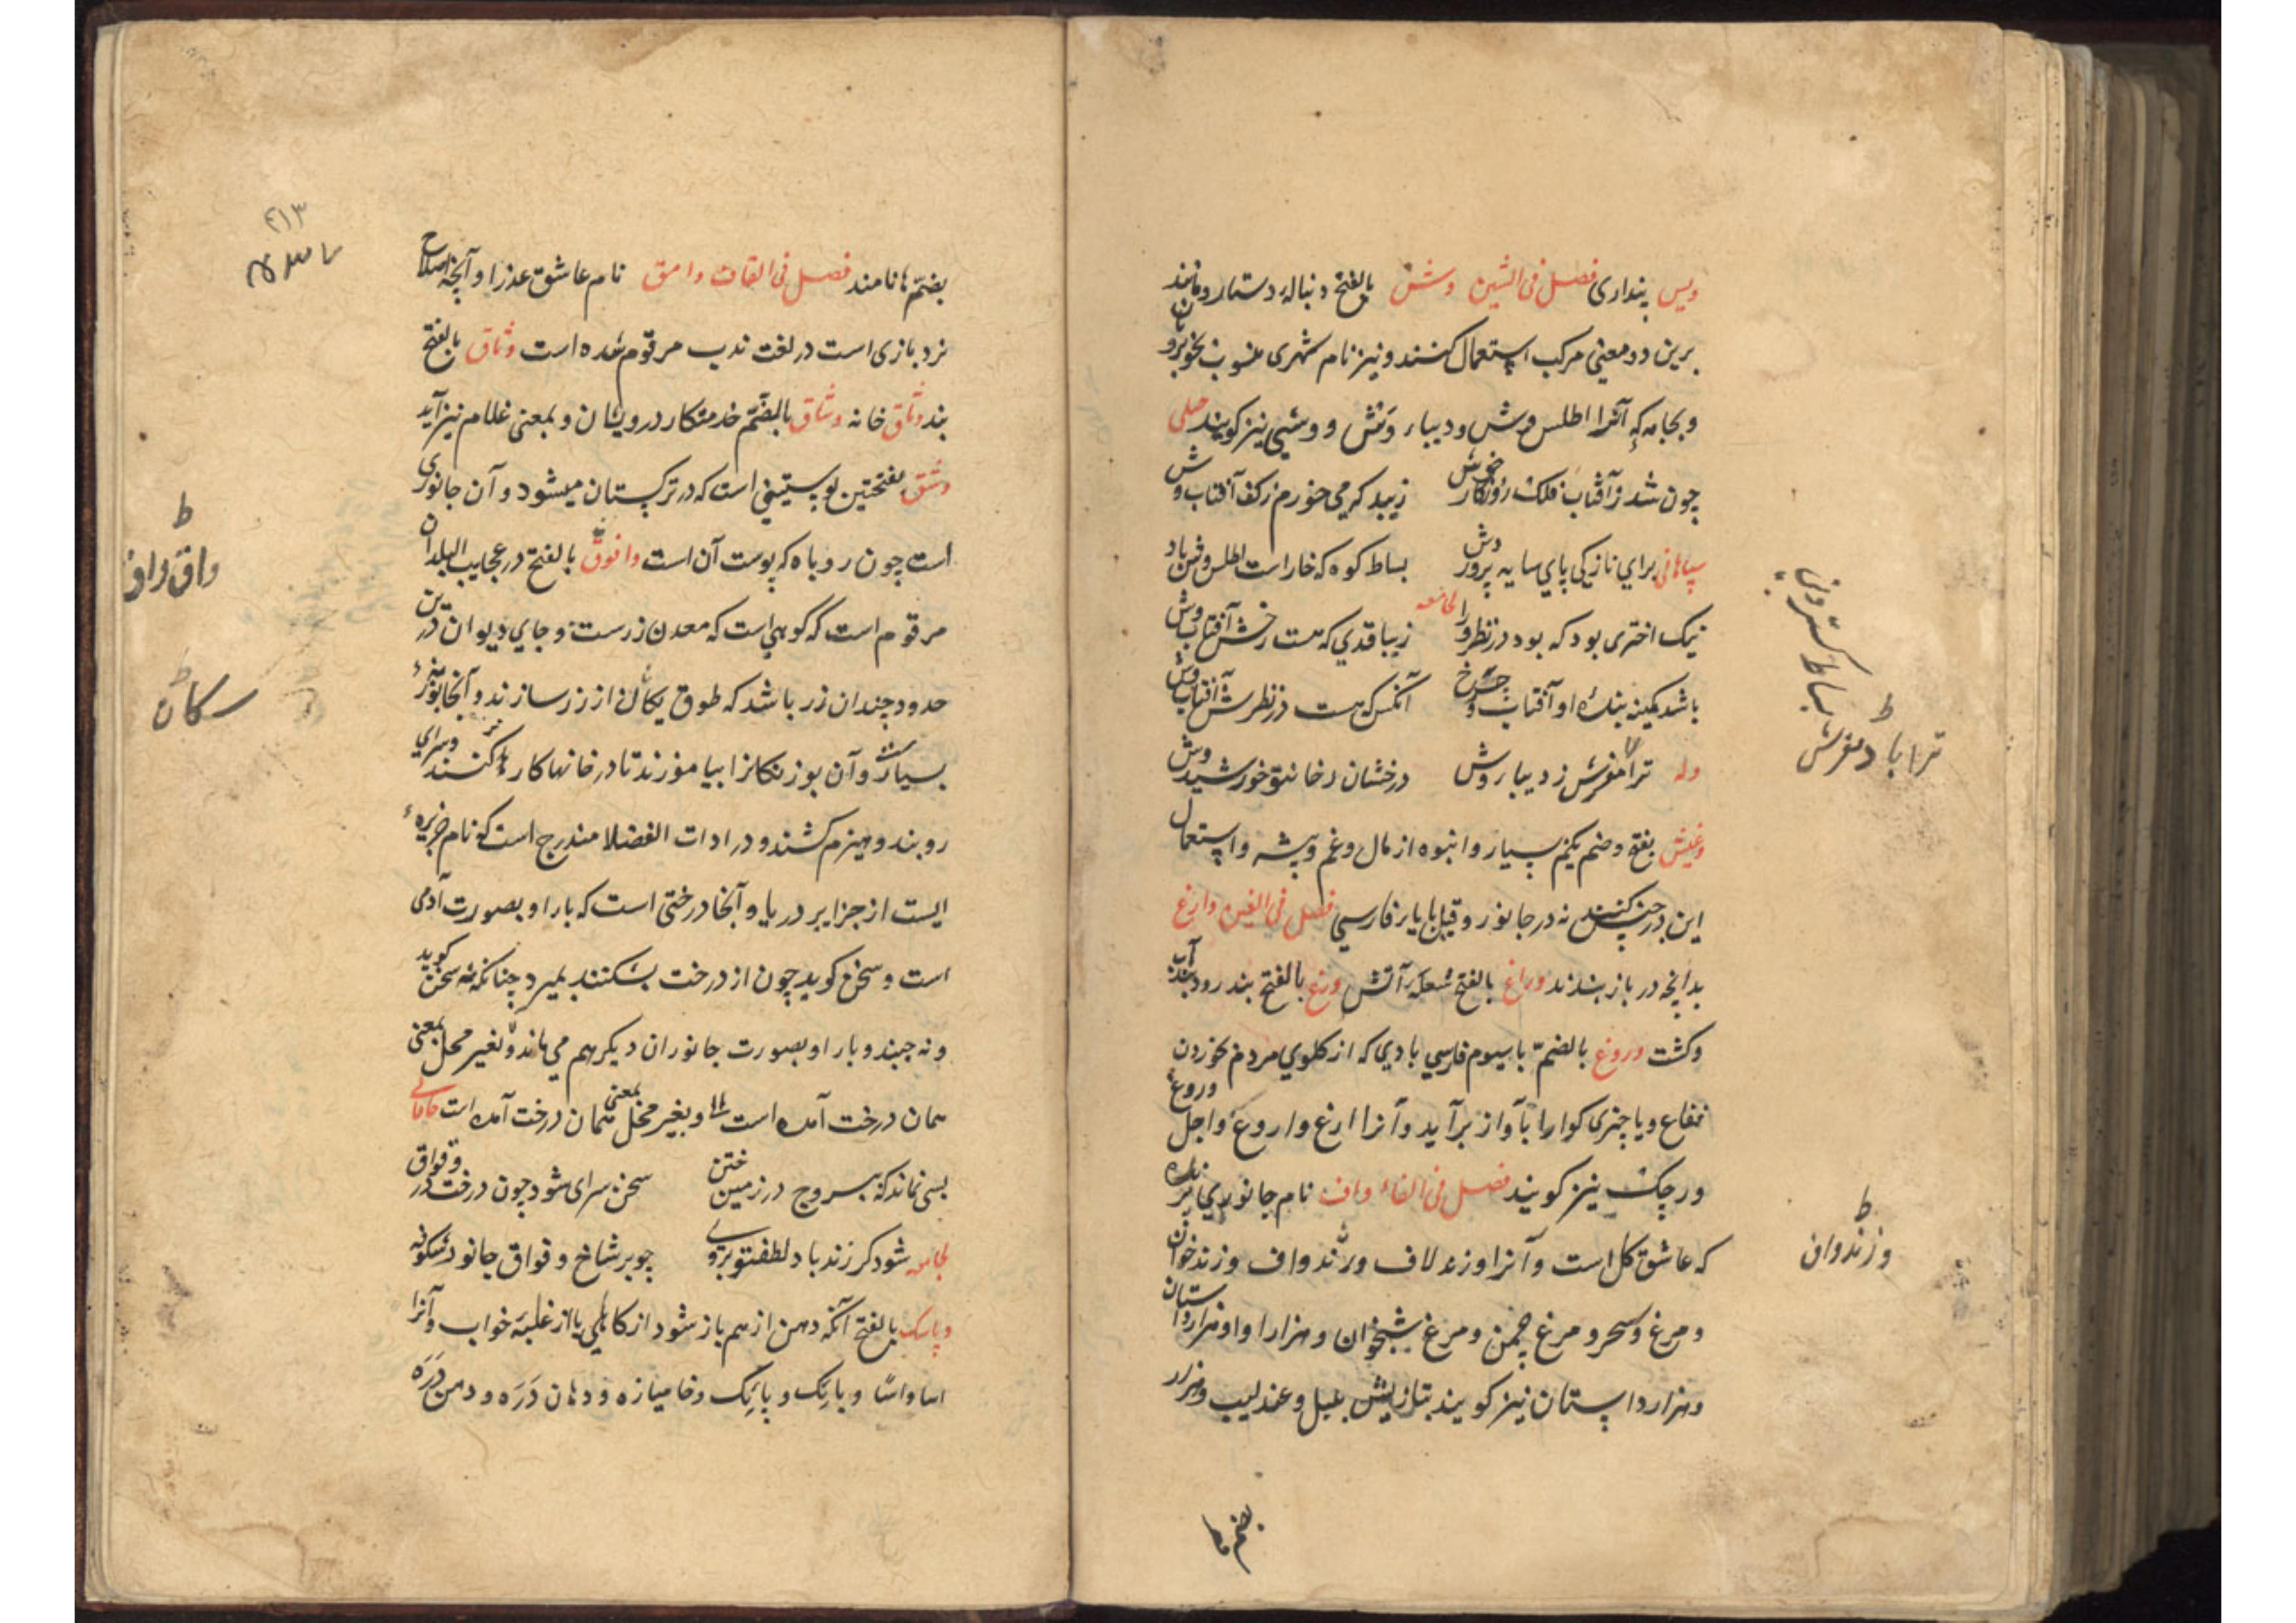 ویس پنداری فصل فی الشین وش بالفتح دنباله دستار و مانند
برین دو معنی مرکب استعمال کنند و نیز نام شهری منسوب بخوبرویان
و بجامه که آنرا اطلس وش و دیبا و وش و وشی نیز گویند
چون شد ز آفتاب فلک روزگار خوش زیبد که می خورم ز کف آفتاب وش
سپاهانی برای نازکی پای سایه پرورش بساط کوه که خاراست اطلس وش باد
نیک اختری بود که بود در نظر ورا زیبا قدی که هست رخش آفتاب وش
باشد کمینه بنده او آفتاب چرخ آنکس که هست در نظرش آفتاب وش
وله ترا مفرش ز دیبا روش درخشان رخا تو خورشید وش
بفتح و ضم یکم بسیار و انبوه از مال و غم و بیشه و استعمال
این در جنس کنند نه در جانور و قیل با یاء فارسی فصل فی الغین وارغ
بدانچه در باز بندند وراغ بالفتح شعله آتش ورغ بالفتح بند رود
و کشت وروغ بالضم با سیوم فارسی بادی که از گلوی مردم بخوردن
فقاع و یا چیزی گوارا بآواز برآید و آنرا ارغ و اروغ و اجل وروغ
ورچک نیز گویند فصل فی الفاء واف نام جانوری پرنده
که عاشق گل است و آنرا وزند لاف و زند واف و زند خوان
و مرغ سحر و مرغ چمن و مرغ شبخوان و هزارا و هزاردستان
و هزار داستان نیز گویند بتازیش بلبل و عندلیب و هزار
بضم ها
بساط کستر
ترا باد مفرش
وزندوان
بضم ها نامند فصل فی القاف وامق نام عاشق عذرا و آنچه اصلاح
نرد بازی است در لغت ندب مرقوم شده است وثاق بالفتح
بند وثاق خانه وشاق بالضم خدمتکار درویشان و بمعنی غلام نیز آید
وشق بفتحتین پوستینی است که در ترکستان میشود و آن جانوری
است چون روباه که پوست آن است وا قوق بالفتح در عجایب البلدان
مرقوم است که کوهی است که معدن زرست و جای دیوان درین
حدود چندان زر باشد که طوق سگان از زر سازند و آنجا بوزینه
بسیارست و آن بوزنگانرا بیاموزند تا در خانها کارها کنند و سرای
روبند و هیزم کشند و در ادات الفضلا مندرج است که نام جزیره
ایست از جزایر دریا و آنجا درختی است که بار او بصورت آدمی
است و سخن گوید چون از درخت بشکنند بمیرد چنانکه نه سخن گوید
و نه جنبد و بار او بصورت جانوران دیگر هم می ماند و بغیر محل بمعنی
همان درخت آمده است و بغیر محل بمعنی همان درخت آمده است خاقانی
بسی نماند که بیروح در زمین ختن سخن سرای شود چون درخت در وقواق
شود گر زند باد لطفت بروی چو بر شاخ وقواق جانور شکوفه
بالفتح آنکه دهن از هم باز شود از کاهلی یا از غلبه خواب و آنرا
اسا و آسا و باسک و پاسک و خامیازه و دهان دره و دهن دره
۴۱۳
واق واق
سکان